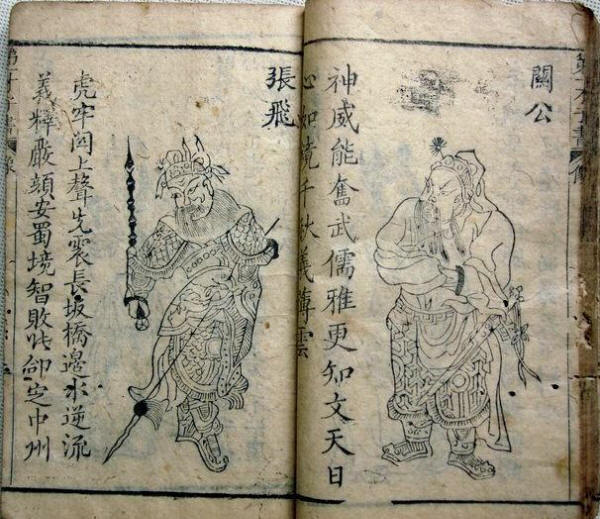 関公
神威能奮武儒雅更知文天日
心如鏡千秋義薄雲
張飛
虎牢関上聲先震長坂橋邊水逆流
義釋嚴顔安蜀境智敗张郃定中州